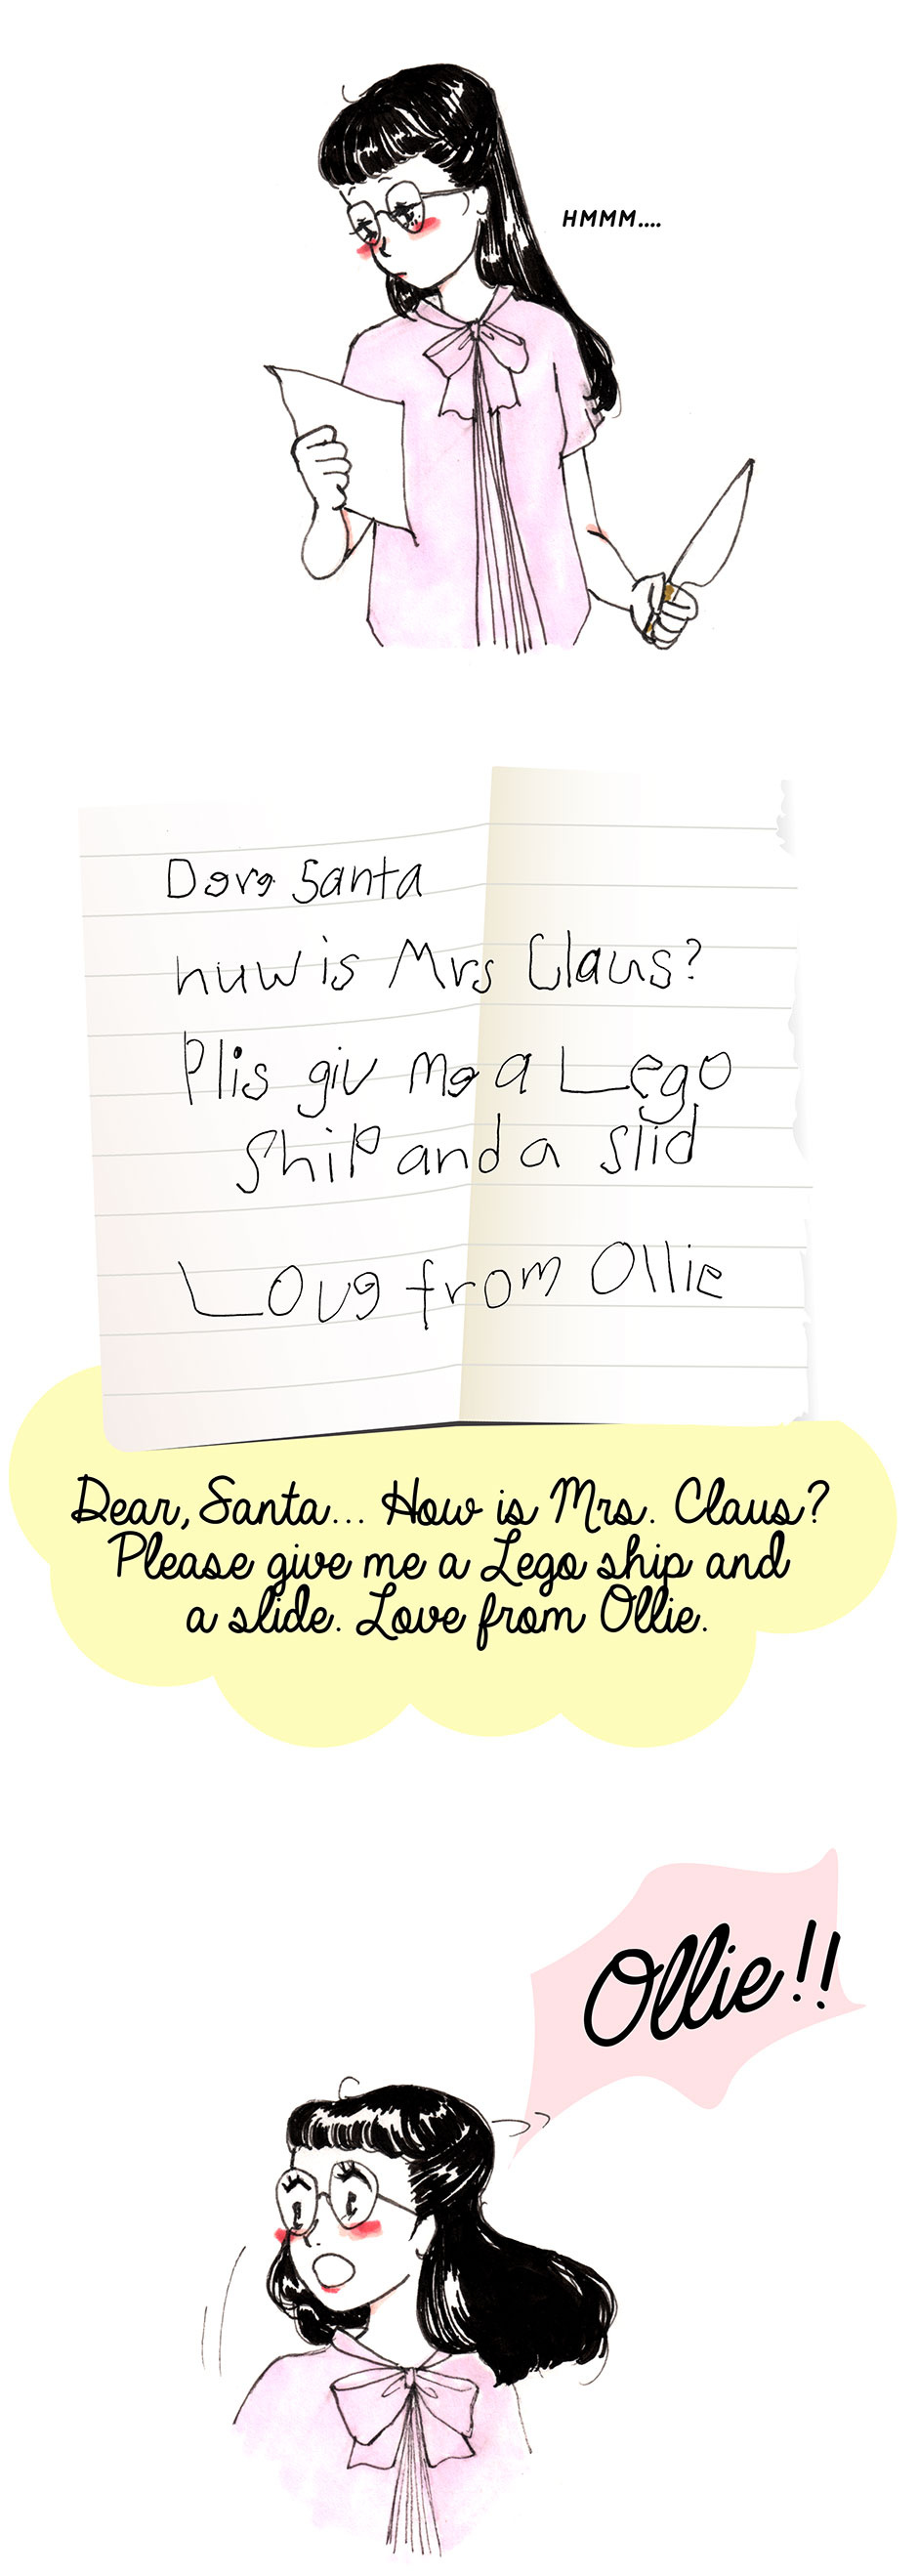 HMMM....
Dere Santa
huw is Mrs Claus?
Plis giv me a Lego
Ship and a slid
Love from Ollie
Dear, Santa... How is Mrs. Claus?
Please give me a Lego ship and
a slide. Love from Ollie.
Ollie!!